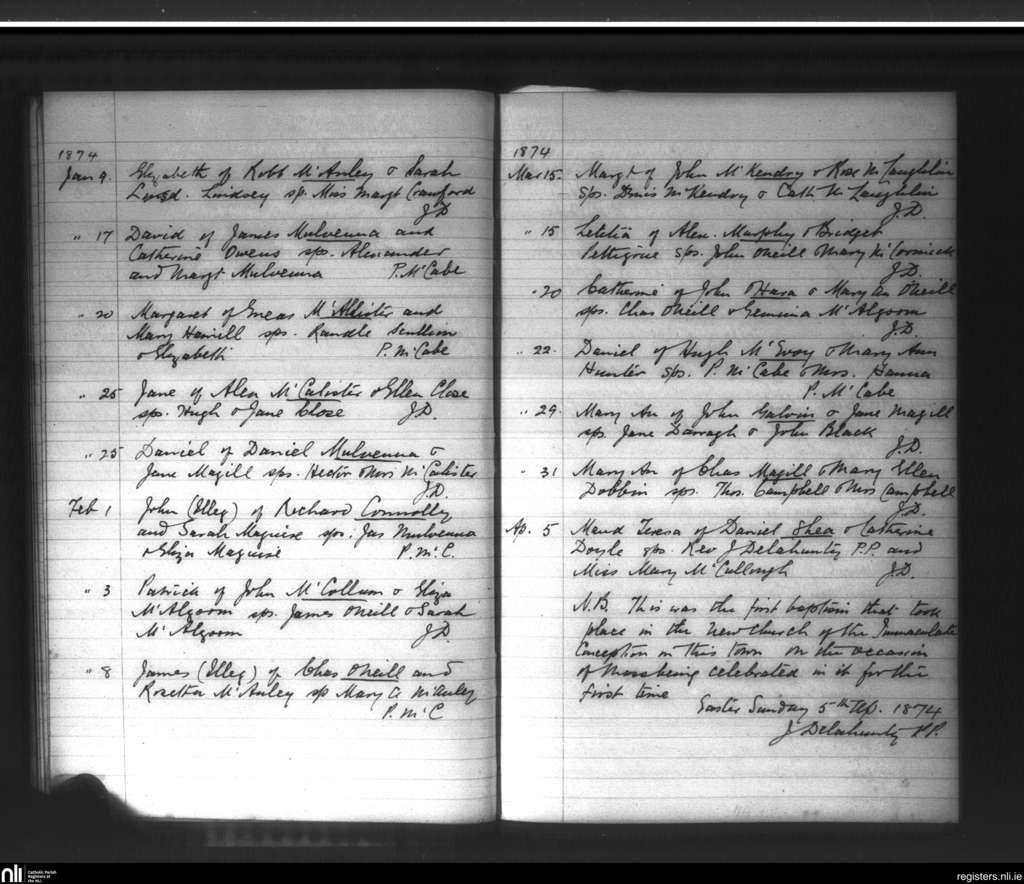 1874
Jan 9. Elizabeth of Robt McAuley & Sarah
Lindsey sp. Miss Margt Crawford
J.D
" 17 David of James Mulvenna and
Catherine Owens sps. Alexander
and Margt Mulvenna P. McCabe
" 20 Margaret of Eneas McAllister and
Mary Hamill sps. Randle Scullion
& Elizabeth P. McCabe
" 25 Jane of Alex McCalister & Ellen Close
sps. Hugh & Jane Close J.D.
" 25 Daniel of Daniel Mulvenna &
Jane Magill sps. Hector & Mrs McCalister
J.D.
Feb 1 John (Illeg) of Richard Connolly
and Sarah Maguire sps. Jas Mulvenna
& Eliza Maguire P. McC.
" 3 Patrick of John McCollum & Eliza
McAlgorm sps. James ONeill & Sarah
McAlgorm J.D
" 8 James (Illeg) of Chas ONeill and
Rosetta McAuley sp Mary A McAuley
P. McC
1874
Mar 15. Margt of John McKendry & Rose McLaughlin
sps. Denis McKendry & Cath McLaughlin
J.D.
" 15 Letetia of Alex. Murphy & Bridget
Pettigrue sps. John ONeill & Mary McCormick
J.D.
" 20 Catherine of John OHara & Mary An ONeill
sps. Chas ONeill & Gemima McAlgorm
J.D.
" 22. Daniel of Hugh McEvoy & Mary Ann
Hunter sps. P. McCabe & Mrs. Hanna
P. McCabe
" 29. Mary An of John Galvin & Jane Magill
sps. Jane Darragh & John Black
J.D.
" 31 Mary An of Chas Magill & Mary Ellen
Dobbin sps. Thos. Campbell & Mrs Campbell
J.D.
Ap. 5 Maud Teresa of Daniel Shea & Catherine
Doyle sps. Rev J Delahunty P.P. and
Miss Mary McCullough J.D.
N.B. This was the first baptism that took
place in the new church of the Immaculate
Conception in this town on the occasion
of Mass being celebrated in it for the
first time
Easter Sunday 5th Ap. 1874
J Delahunty P.P.
nli Catholic Parish
Registers at
the NLI
registers.nli.ie